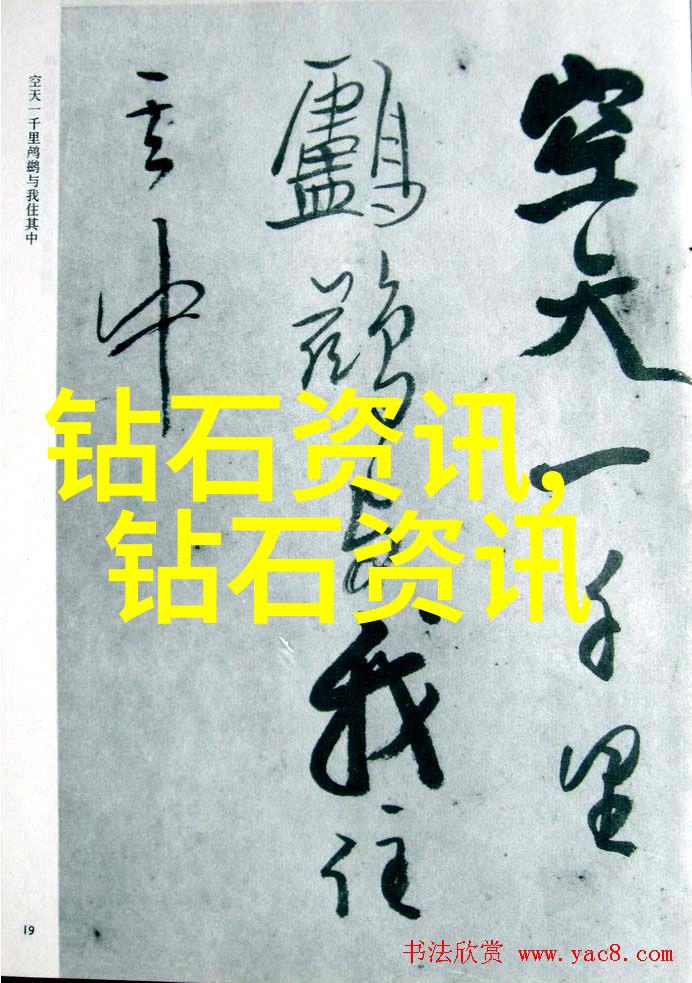 空天一千里
我住
其中
空天一千里鸬鹚与我住其中
钻石资讯,
钻石资讯
19
书法欣赏 www.yac8.com